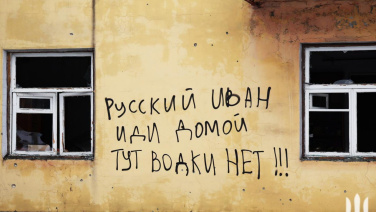 РУССКИЙ ИВАН
ИДИ ДОМОЙ
ТУТ ВОДКИ НЕТ !!!